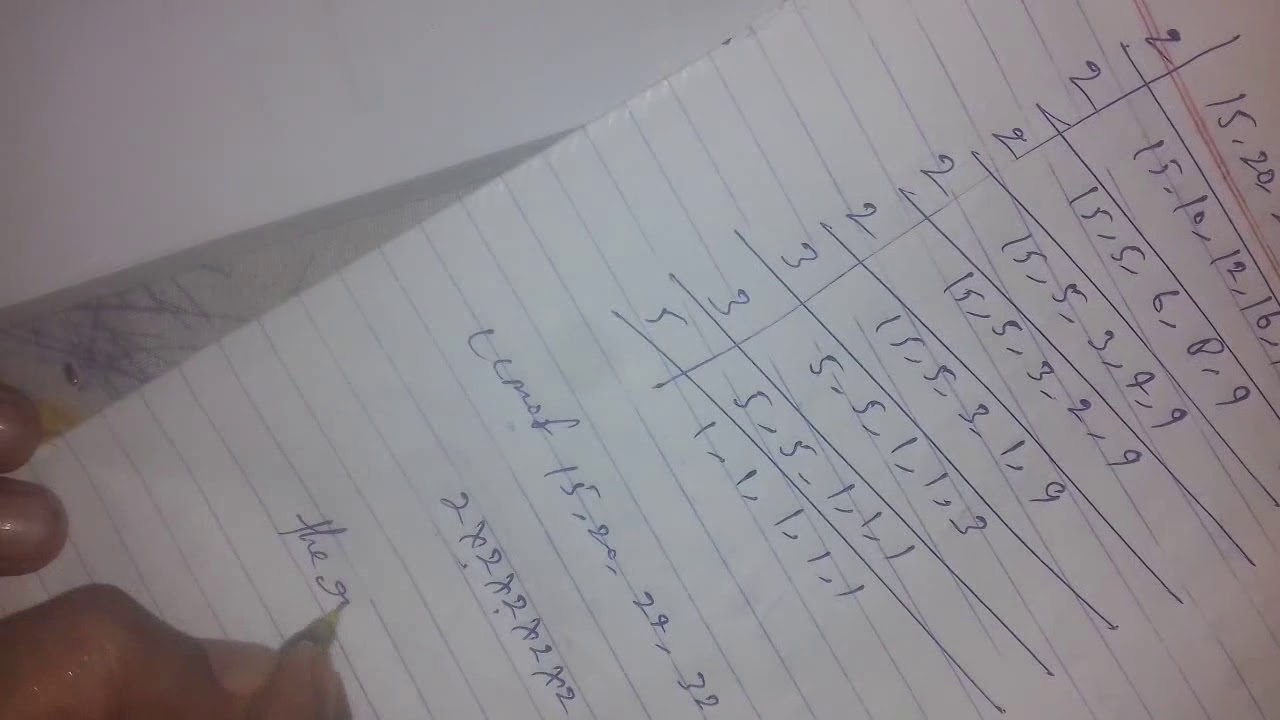 2 | 15, 20,
2 | 15, 10, 12, 16,
2 | 15, 5, 6, 8, 9
2 | 15, 5, 3, 4, 9
2 | 15, 5, 3, 2, 9
3 | 15, 5, 3, 1, 9
3 | 5, 5, 1, 1, 3
5 | 5, 5, 1, 1, 1
1, 1, 1, 1, 1
LCM of 15, 20, 24, 32
2x2x2x2x2
the